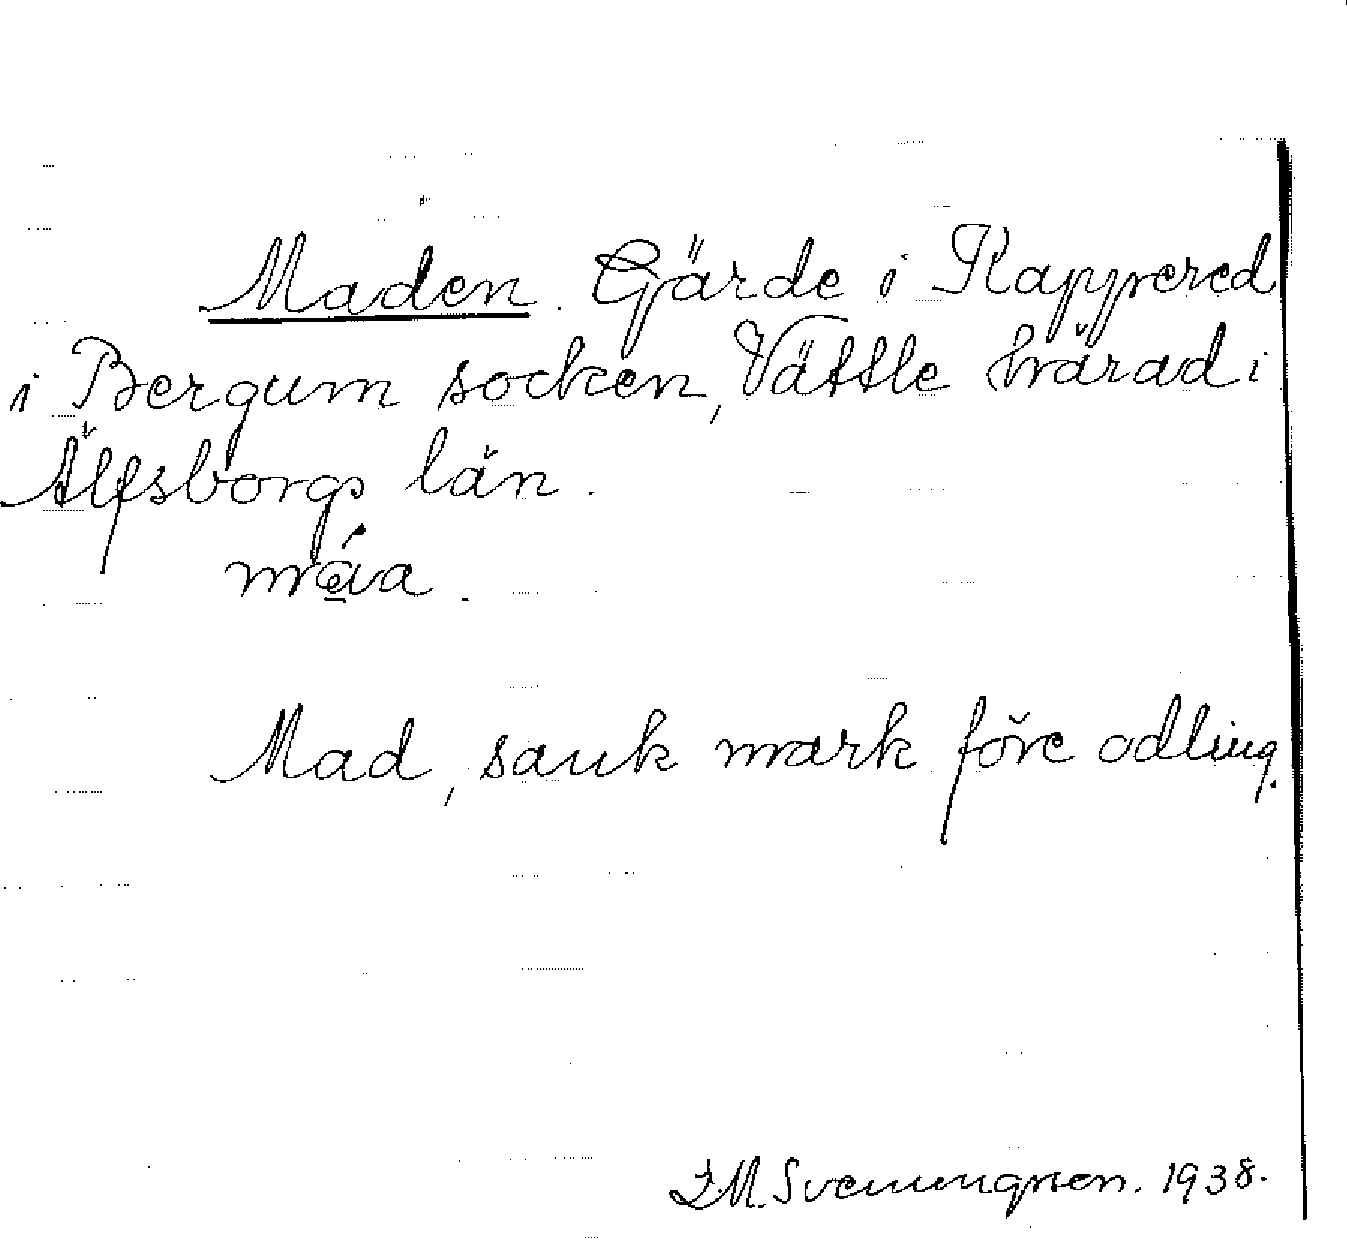 Maden. Gärde i Kappered
i Bergum socken, Vättle härad i
Älfsborgs län.
Mad, sank mark före odling.
1938.